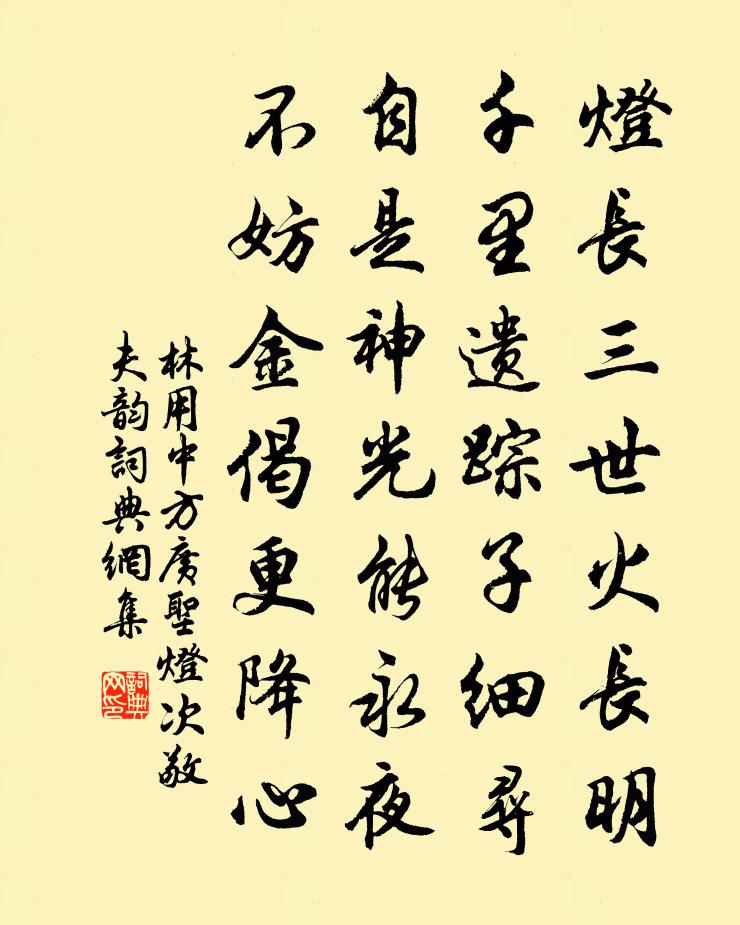 燈長三世火長明
千里遗踪子細尋
自是神光能永夜
不妨金偈更降心
林用中方廣聖燈次敬
夫韵詞典網集
詞典网印